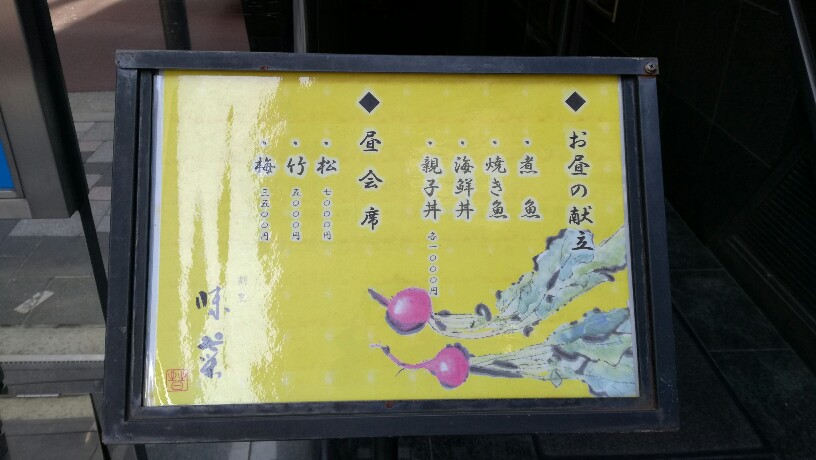 ◆お昼の献立
・煮魚
・焼き魚
・海鮮丼
・親子丼 各一〇〇〇円
◆昼会席
・松 七〇〇〇円
・竹 五〇〇〇円
・梅 三五〇〇円
割烹
味菜